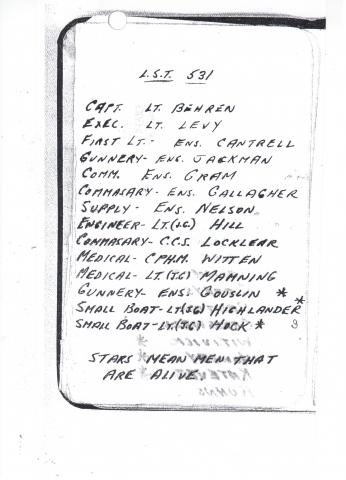 L.S.T. 531
CAPT. LT. BEHREN
EXEC. LT. LEVY
FIRST LT. - ENS. CANTRELL
GUNNERY - ENS. JACKMAN
COMM. ENS. GRAM
COMMASARY - ENS. GALLAGHER
SUPPLY - ENS. NELSON
ENGINEER - LT.(J.G.) HILL
COMMASARY - C.C.S. LOCKLEAR
MEDICAL - CPHM. WITTEN
MEDICAL - LT(JG) MANNING
GUNNERY - ENS. GOUSLIN *
SMALL BOAT - LT(JG) HIGHLANDER *
SMALL BOAT - LT.(JG) HOCK *
STARS MEAN MEN THAT
ARE ALIVE.